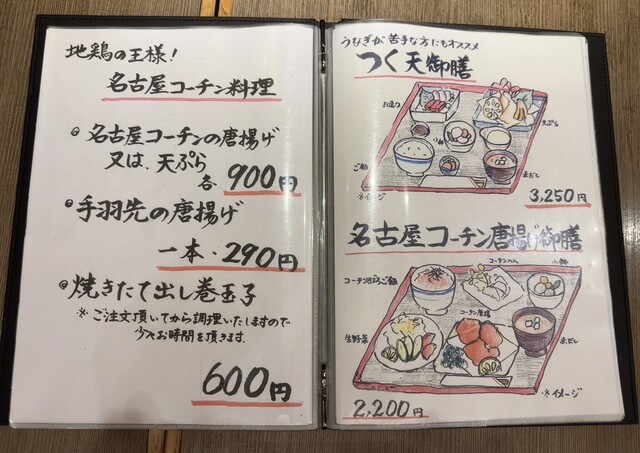 地鶏の王様!
名古屋コーチン料理
名古屋コーチンの唐揚げ
又は、天ぷら
各 900円
手羽先の唐揚げ
一本・290円
焼きたて出し巻玉子
※ご注文頂いてから調理いたしますので
少々お時間を頂きます。
600円
うなぎが苦手な方にもオススメ
つく天御膳
お造り
天ぷら
小鉢
ご飯
赤だし
※イメージ
3,250円
名古屋コーチン唐揚げ御膳
コーチンハム
小鉢
コーチンそぼろご飯
コーチン唐揚
生野菜
赤だし
※イメージ
2,200円